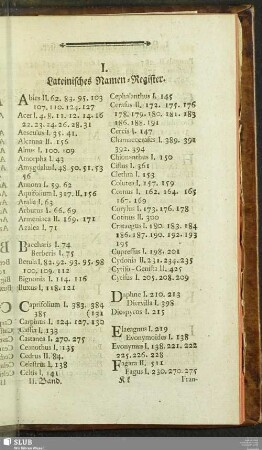 I.
Lateinisches Namen-Register.
Abies II. 62. 83. 95. 103
107. 110. 124. 127
Acer I. 4. 8. 11. 12. 14. 16
21. 23. 24. 26. 28. 31
Aesculus I. 35. 41.
Alcanna II. 156
Alnus I. 100. 109
Amorpha I. 43
Amygdalus I. 48. 50. 51. 53
56
Annona I. 59. 62
Aquifolium I. 327. II. 156
Aralia I. 63
Arbutus I. 66. 69
Armeniaca II. 169. 171
Azalea I. 71
Baccharis I. 74
Berberis I. 75
Betula I. 82. 92. 93. 95. 98
100. 109. 112
Bignonia I. 114. 116
Buxus I. 118. 121
Caprifolium I. 383. 384
385
Carpinus I. 124. 127. 130
(131
Cassia I. 133
Castanea I. 270. 275
Ceanothus I. 135
Cedrus II. 84.
Celastrus I. 138
Celtis I. 141
II. Band.
Cephalanthus I. 145
Cerasus II. 172. 175. 176
178. 179. 180. 181. 183
186. 188. 191
Cercis I. 147
Chamaecerasus I. 389. 391
392. 394
Chionanthus I. 150
Cistus I. 361
Clethra I. 153
Colutea I. 157. 159
Cornus I. 162. 164. 165
167. 169
Corylus I. 173. 176. 178
Cotinus II. 300
Crataegus I. 180. 183. 184
186. 187. 190. 192. 193
195
Cupressus I. 198. 201
Cydonia II. 231. 234. 235
Cytiso-Genista II. 425
Cytisus I. 205. 208. 209
Daphne I. 210. 213
Diervilla I. 398
Diospyros I. 215
Elaeagnus I. 219
Evonymoides I. 138
Evonymus I. 138. 221. 222
225. 226. 228
Fagara II. 511
Fagus I. 230. 270. 275
Kk
Fran-
SLUB
Wir führen Wissen.